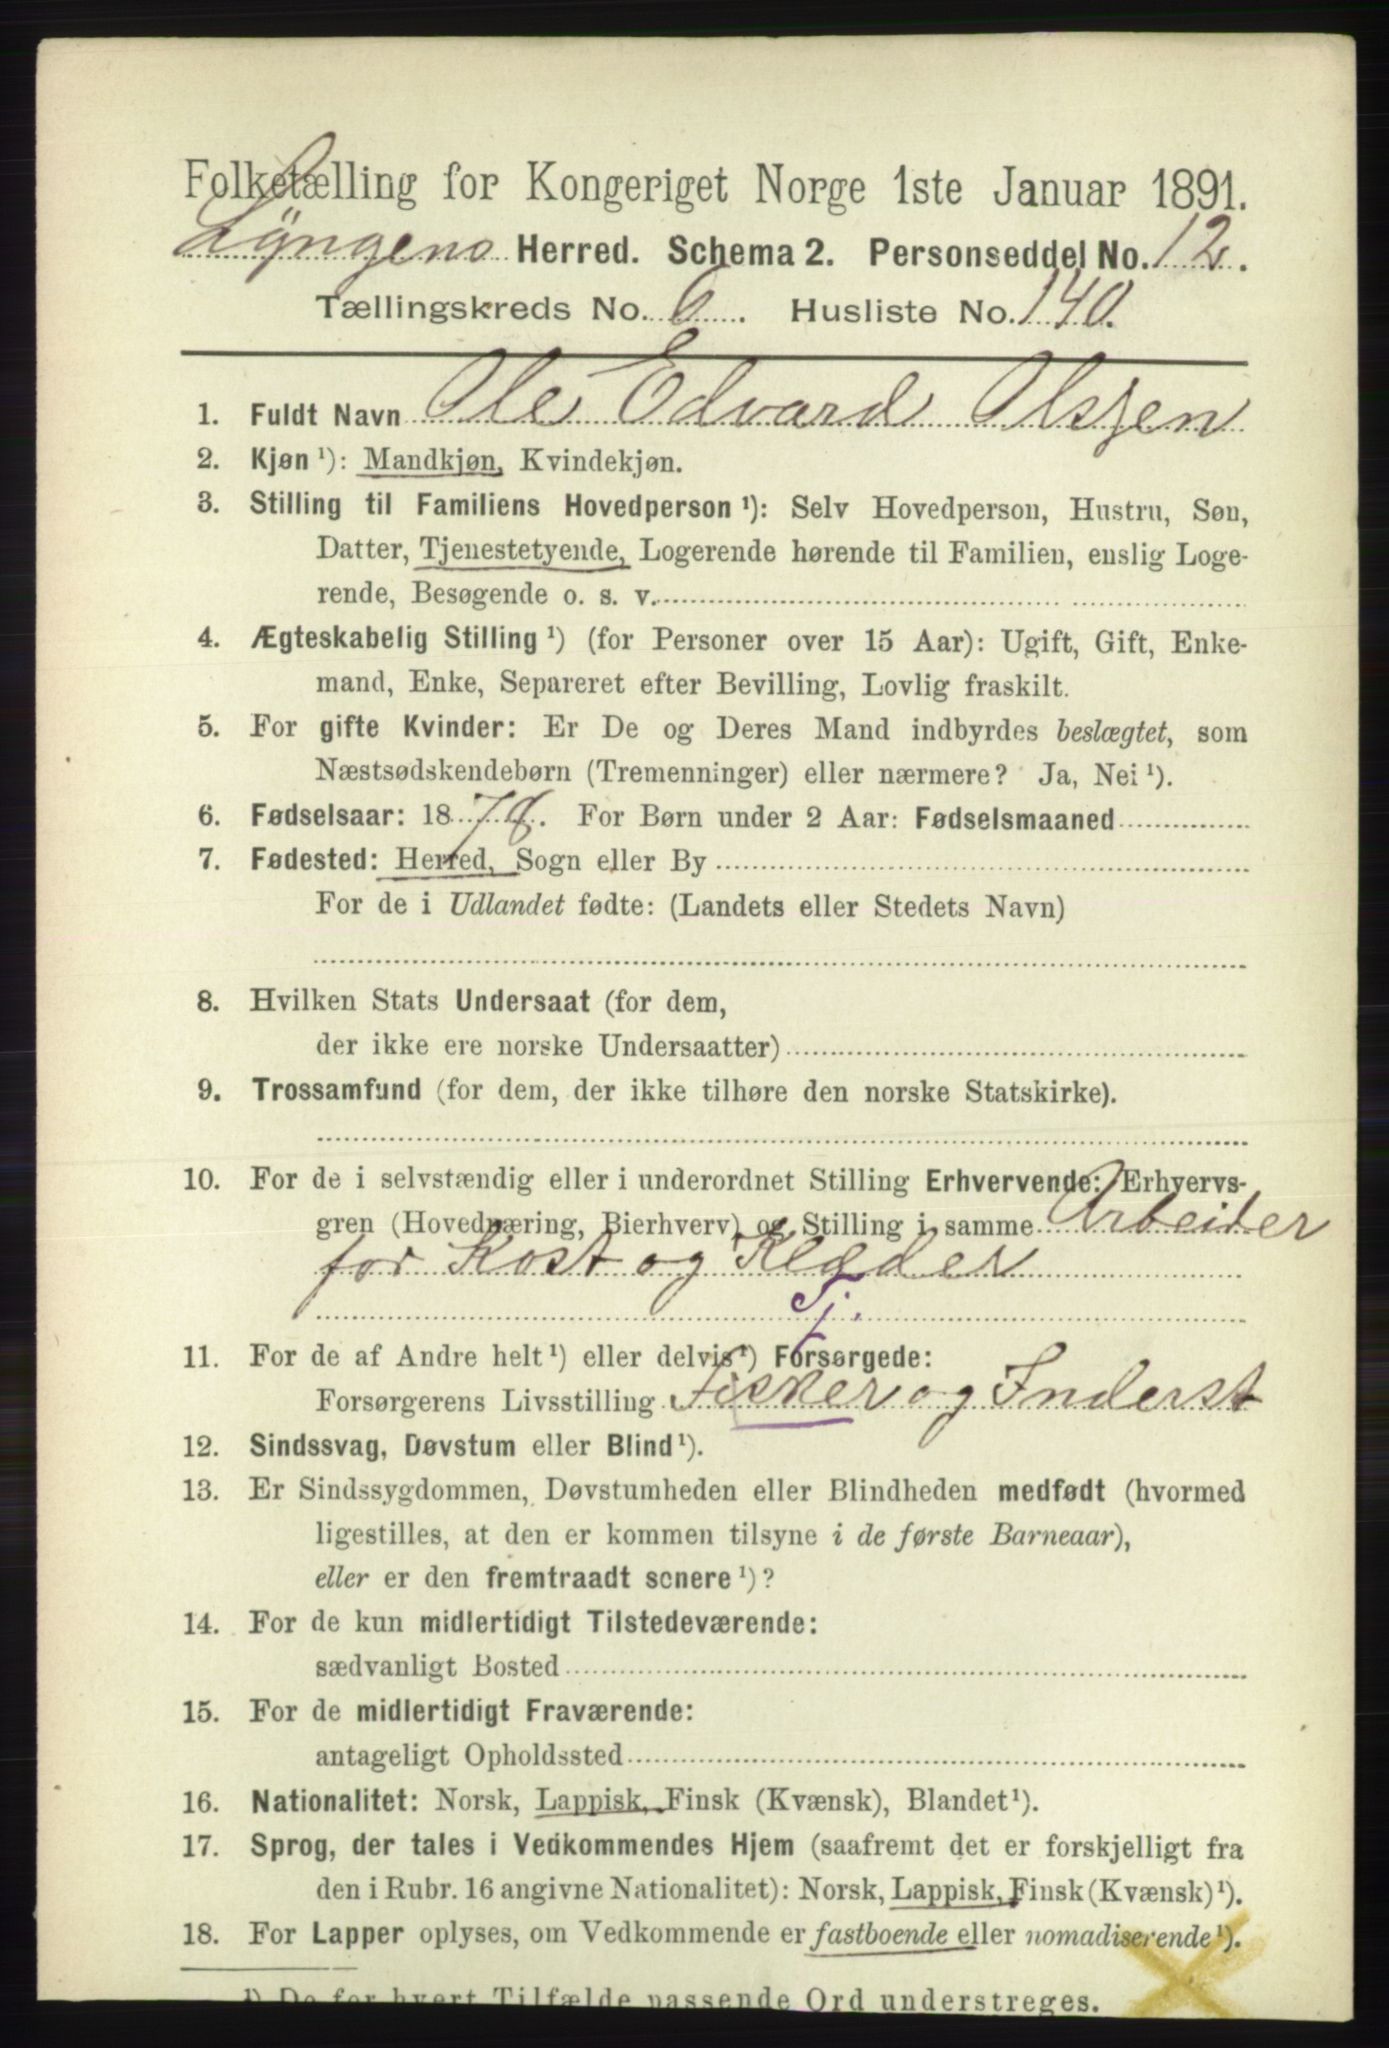 Folketælling for Kongeriget Norge 1ste Januar 1891.
Lyngens Herred. Schema 2. Personseddel No. 12.
Tællingskreds No. 6. Husliste No. 140.
1. Fuldt Navn Ole Edvard Olsen
2. Kjøn ¹): Mandkjøn, Kvindekjøn.
3. Stilling til Familiens Hovedperson ¹): Selv Hovedperson, Hustru, Søn,
Datter, Tjenestetyende, Logerende hørende til Familien, enslig Loge-
rende, Besøgende o. s. v.
4. Ægteskabelig Stilling ¹) (for Personer over 15 Aar): Ugift, Gift, Enke-
mand, Enke, Separeret efter Bevilling, Lovlig fraskilt.
5. For gifte Kvinder: Er De og Deres Mand indbyrdes beslægtet, som
Næstsødskendebørn (Tremenninger) eller nærmere? Ja, Nei ¹).
6. Fødselsaar: 1878. For Børn under 2 Aar: Fødselsmaaned
7. Fødested: Herred, Sogn eller By
For de i Udlandet fødte: (Landets eller Stedets Navn)
8. Hvilken Stats Undersaat (for dem,
der ikke ere norske Undersaatter)
9. Trossamfund (for dem, der ikke tilhøre den norske Statskirke).
10. For de i selvstændig eller i underordnet Stilling Erhvervende: Erhvervs-
gren (Hovednæring, Bierhverv) og Stilling i samme Arbeider
for Kost og Klæder
Tj.
11. For de af Andre helt ¹) eller delvis ¹) Forsørgede:
Forsørgerens Livsstilling Fisker og Inderst
12. Sindssvag, Døvstum eller Blind ¹).
13. Er Sindssygdommen, Døvstumheden eller Blindheden medfødt (hvormed
ligestilles, at den er kommen tilsyne i de første Barneaar),
eller er den fremtraadt senere ¹)?
14. For de kun midlertidigt Tilstedeværende:
sædvanligt Bosted
15. For de midlertidigt Fraværende:
antageligt Opholdssted
16. Nationalitet: Norsk, Lappisk, Finsk (Kvænsk), Blandet ¹).
17. Sprog, der tales i Vedkommendes Hjem (saafremt det er forskjelligt fra
den i Rubr. 16 angivne Nationalitet): Norsk, Lappisk, Finsk (Kvænsk) ¹).
18. For Lapper oplyses, om Vedkommende er fastboende eller nomadiserende ¹).
¹) De for hvert Tilfælde passende Ord understreges.